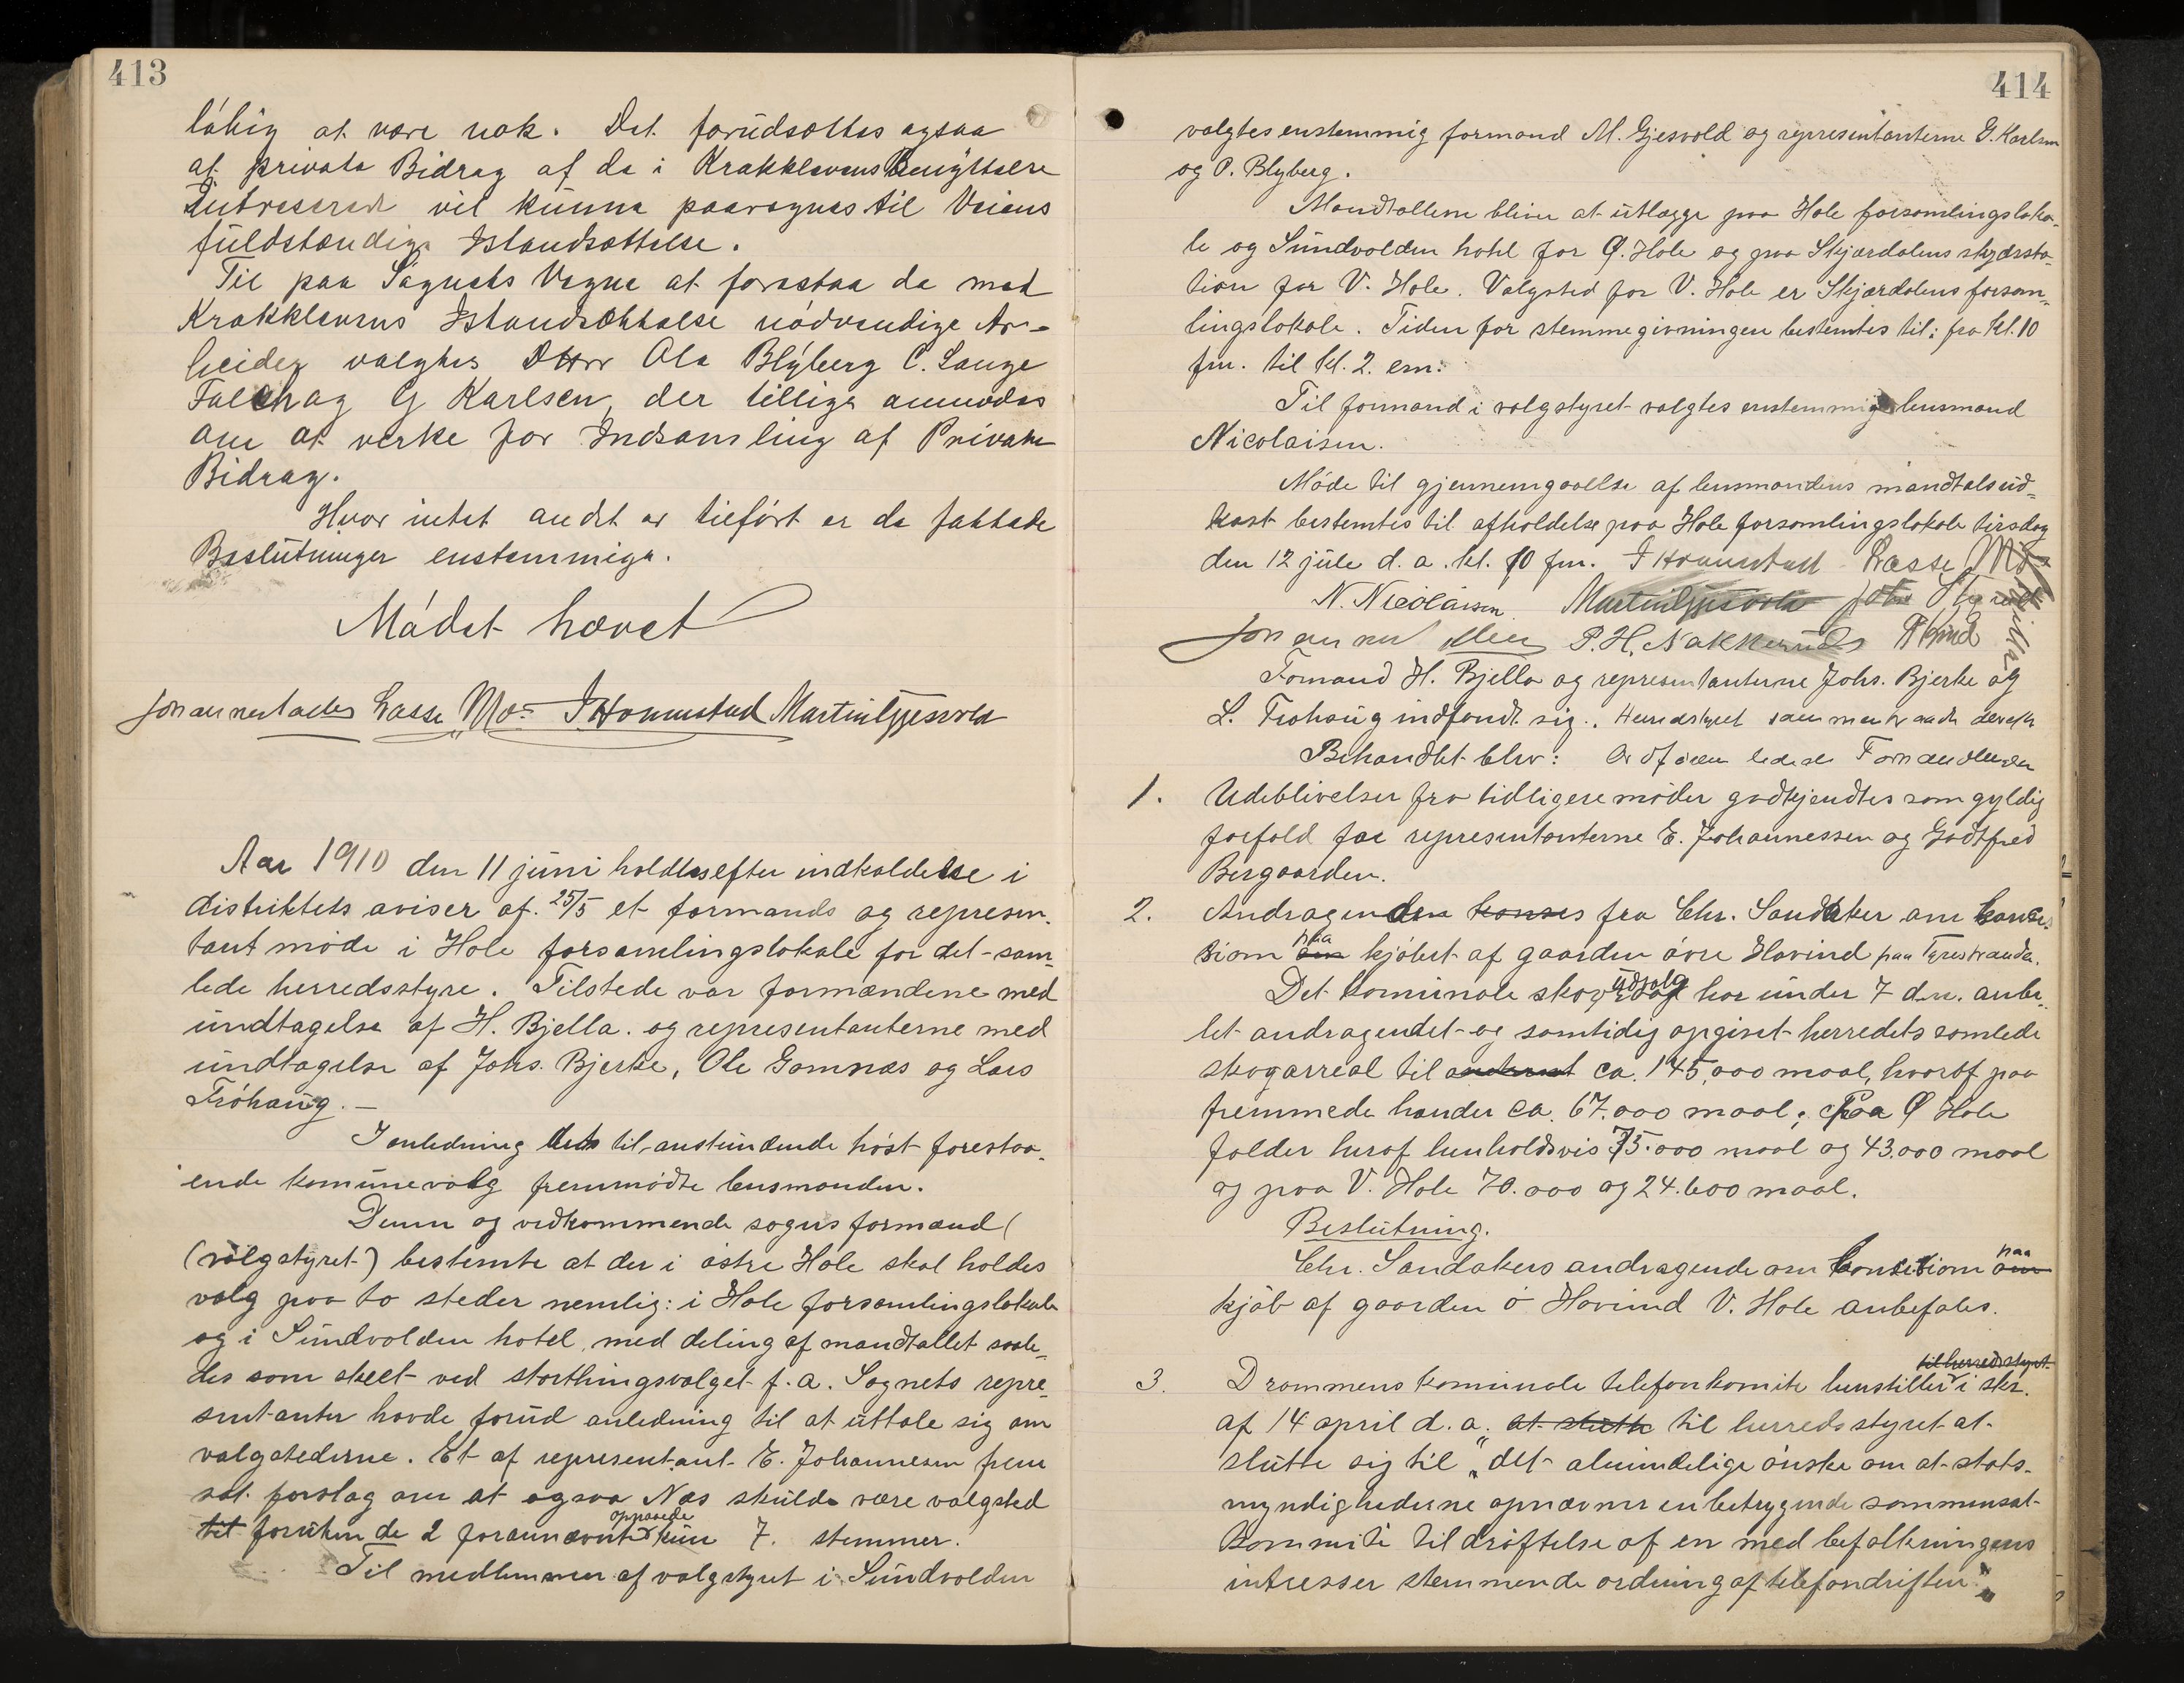 413
lákig at være nok. Det forudsættes ogsaa
at private Bidrag af de i Krokklevens Benyttelse
Interesserede vil kunne paaregnes til Veiens
fuldstændige Istandsættelse.
Til paa Sagnets Vegne at forestaa de med
Krokklevens Istandsættelse nødvendige Ar-
beider valgtes DHrr Ole Blyberg C. Lange
Falch og G Karlsen, der tillige anmodes
om at virke for Indsamling af Private
Bidrag.
Hvor intet andet er tilført er de fattede
Beslutninger enstemmige.
Mødet hævet
Lasse Moe I Hornnstad Martin Gjesvold
Aar 1910 den 11 juni holdtes efter indkaldelse i
distriktets aviser af 25/5 et formands og represen-
tant møde i Hole forsamlingslokale for det sam-
lede herredsstyre. Tilstede var formændene med
undtagelse af H. Bjella. og representanterne med
undtagelse af Johs. Bjerke, Ole Gomnæs og Lars
Frøhaug. —
I anledning dets til anstundende høst forestaa-
ende komunevalg fremmødte lensmanden.
Denne og vedkommende sogns formænd (
(valgstyret) bestemte at der i østre Hole skal holdes
valg paa to steder nemlig: i Hole forsamlingslokale
og i Sundvolden hotel, med deling af mandtallet saale-
des som skeet ved storthingsvalget f.a. Sognets repre-
sentanter havde forud anledning til at uttale sig om
valgstederne. Et af representant E. Johannesen frem
sat forslag om at ogsaa Næs skulde være valgsted
tet foruten de 2 forannævnte opnaaede kun 7. stemmer.
Til medlemmer af valgstyret i Sundvolden
414
valgtes enstemmig formand M. Gjesvold og representanterne G. Karlsen
og P. Blyberg.
Mandtallene bliver at utlægge paa Hole forsamlingsloka-
le og Sundvolden hotel for Ø. Hole og paa Skjærdalens skydssta-
tion for V. Hole. Valgsted for V. Hole er Skjærdalens forsam-
lingslokale. Tiden for stemmegivningen bestemtes til: fra kl. 10
fm. til kl. 2. em.
Til formand i valgstyret valgtes enstemmig lensmand
Nicolaisen.
Møde til gjennemgaaelse af lensmandens mandtalsud-
kast bestemtes til afholdelse paa Hole forsamlingslokale tirsdag
den 12 jule d. a. kl. 10 fm. I Hornnstad Lasse Moe
N. Nicolaisen Martin Gjesvold
P. H. Nakkerud
Formand H. Bjella og representanterne Johs. Bjerke og
L. Frøhaug indfandt sig. Herredstyret sammentraadte derefter
Behandlet blev: Ordføreren ledede Forhandlingen
1. Udeblivelser fra tidligere møder godkjendtes som gyldig
forfald for representanterne E. Johannessen og Godtfred
Bergaarden.
2. Andragenden konses fra Chr. Sandaker om konces-
sion om paa kjøbet af gaarden øvre Hovind paa Tyrestranden.
Det komunale skogudvalg har under 7 dn. anbe-
let andragendet og samtidig opgivet herredets samlede
skogarreal til andrat ca. 145,000 maal, hvoraf paa
fremmede hænder ca. 67.000 maal; Paa Ø Hole
falder heraf henholdsvis 75.000 maal og 43.000 maal
og paa V. Hole 70.000 og 24.600 maal.
Beslutning.
Chr. Sandakers andragende om koncession om paa
kjøb af gaarden ø Hovind V. Hole anbefales.
3. Drammens komunale telefonkomite henstiller til herredsstyret i skr.
af 14 april d. a. at slutte til herredsstyret at
slutte sig til "det almindelige ønske om at stats-
myndighederne opnævner en betryggende sammensat
kommité til drøftelse af en med befolkningens
intresser stemmende ordning af telefondriften"